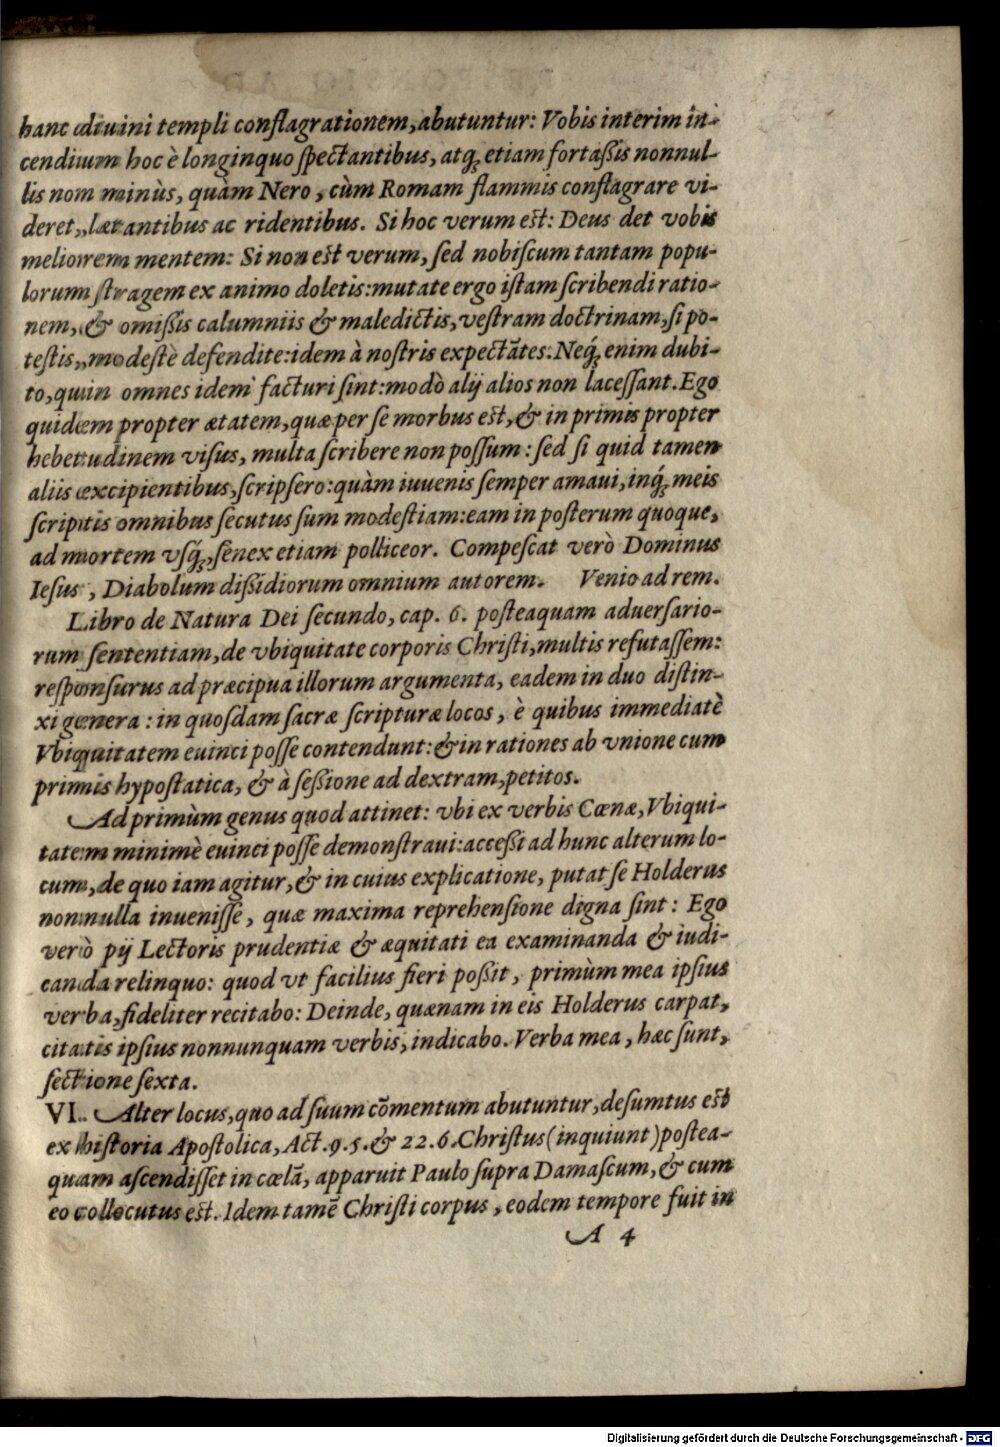 hanc diuini templi conflagrationem, abutuntur: Vobis interim in-
cendium hoc è longinquo spectantibus, atq; etiam fortaßis nonnul-
lis non minùs, quàm Nero, cùm Romam flammis conflagrare vi-
deret, lætantibus ac ridentibus. Si hoc verum est: Deus det vobis
meliorem mentem: Si non est verum, sed nobiscum tantam popu-
lorum stragem ex animo doletis: mutate ergo istam scribendi ratio-
nem, & omißis calumniis & maledictis, vestram doctrinam, si po-
testis, modestè defendite: idem à nostris expectãtes. Neq; enim dubi-
to, quin omnes idem facturi sint: modò alij alios non lacessant. Ego
quidem propter ætatem, quæ per se morbus est, & in primis propter
hebetudinem visus, multa scribere non possum: sed si quid tamen
aliis excipientibus, scripsero: quàm iuuenis semper amaui, inq; meis
scriptis omnibus secutus sum modestiam: eam in posterum quoque,
ad mortem vsq;, senex etiam polliceor. Compescat verò Dominus
Iesus, Diabolum dißidiorum omnium autorem. Venio ad rem.
Libro de Natura Dei secundo, cap. 6. posteaquam aduersario-
rum sententiam, de vbiquitate corporis Christi, multis refutassem:
responsurus ad præcipua illorum argumenta, eadem in duo distin-
xi genera: in quosdam sacræ scripturæ locos, è quibus immediatè
Vbiquitatem euinci posse contendunt: & in rationes ab vnione cum
primis hypostatica, & à seßione ad dextram, petitos.
Ad primùm genus quod attinet: vbi ex verbis Cœnæ, Vbiqui-
tatem minimè euinci posse demonstraui: acceßi ad hunc alterum lo-
cum, de quo iam agitur, & in cuius explicatione, putat se Holderus
nonnulla inuenisse, quæ maxima reprehensione digna sint: Ego
verò pij Lectoris prudentiæ & æquitati ea examinanda & iudi-
canda relinquo: quod vt facilius fieri poßit, primùm mea ipsius
verba, fideliter recitabo: Deinde, quænam in eis Holderus carpat,
citatis ipsius nonnunquam verbis, indicabo. Verba mea, hæc sunt,
sectione sexta.
VI. Alter locus, quo ad suum cõmentum abutuntur, desumtus est
ex historia Apostolica, Act. 9. 5. & 22. 6. Christus (inquiunt) postea-
quam ascendisset in cœlũ, apparuit Paulo supra Damascum, & cum
eo collocutus est. Idem tamẽ Christi corpus, eodem tempore fuit in
A 4
Digitalisierung gefördert durch die Deutsche Forschungsgemeinschaft - DFG